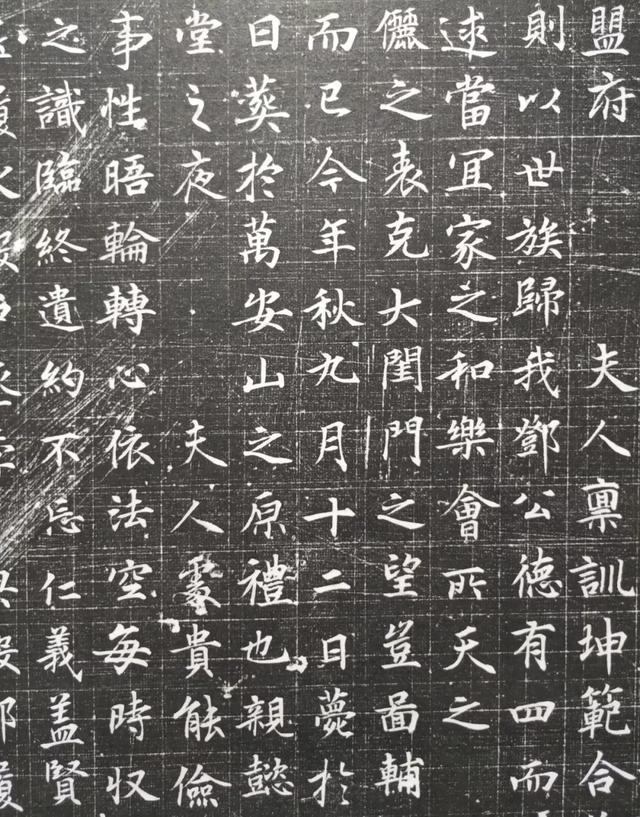 盟府 夫人稟訓珅範合
則以世族歸我鄧公德有四而
逑當宜家之和樂會所天之
儷之表克大閨門之望豈啚輔
而已今年秋九月十二日薨於
日葬於萬安山之原禮也親懿
堂之夜 夫人處貴能儉
事性晤輪轉心依法空每時収
之識臨終遺約不忘仁義盖賢